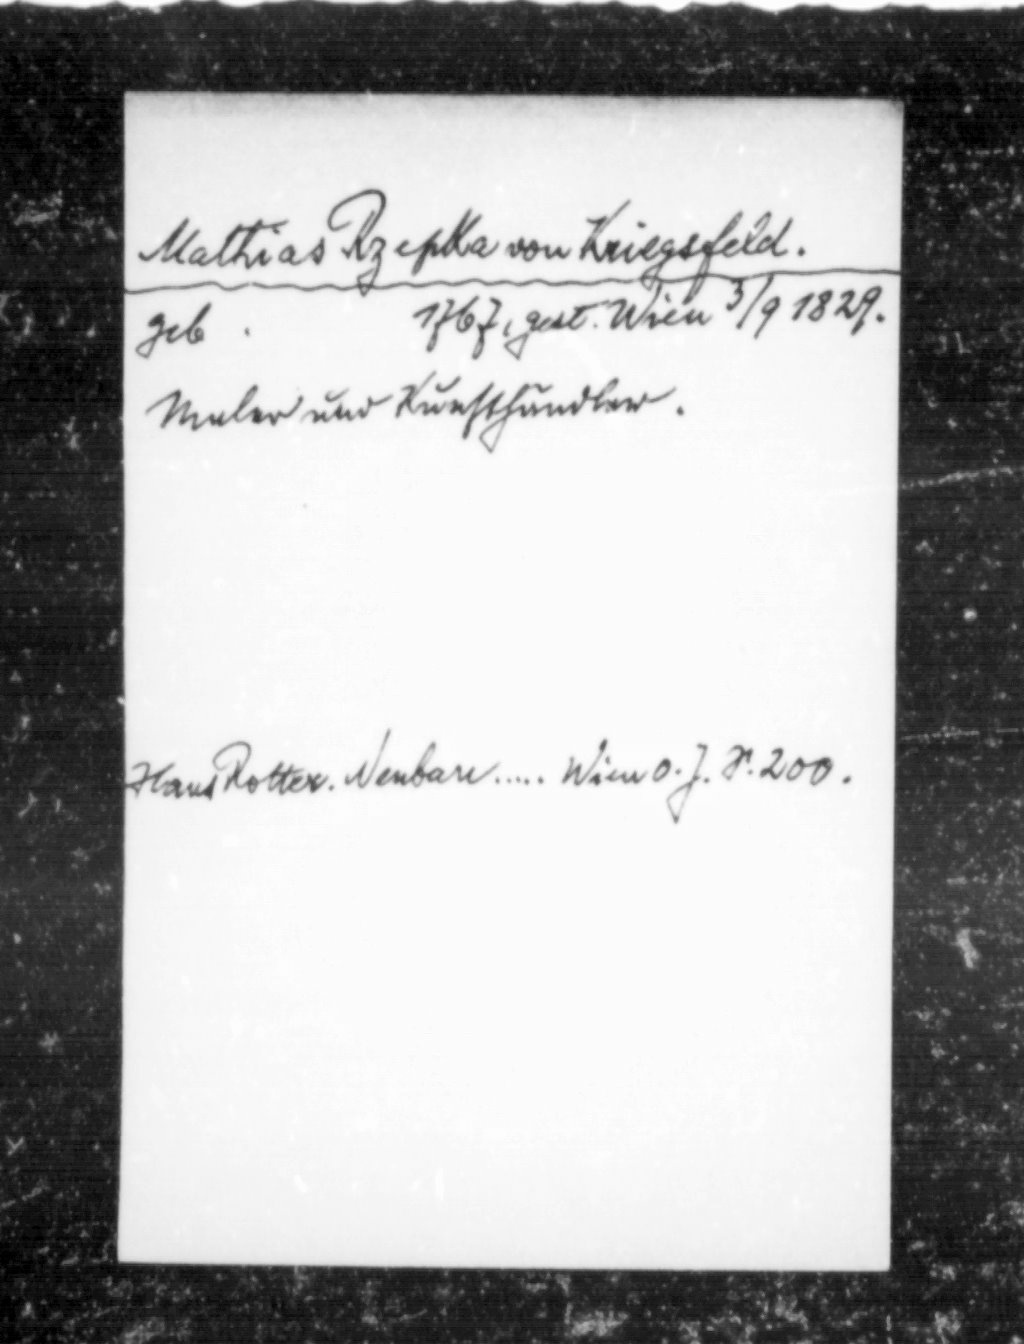 Mathias Rzepka von Kriegsfeld.
geb . 1767, gest. Wien 3/9 1829.
Maler und Kunsthändler.
Hans Rotter. Neubau ..... Wien o. J. S. 200.